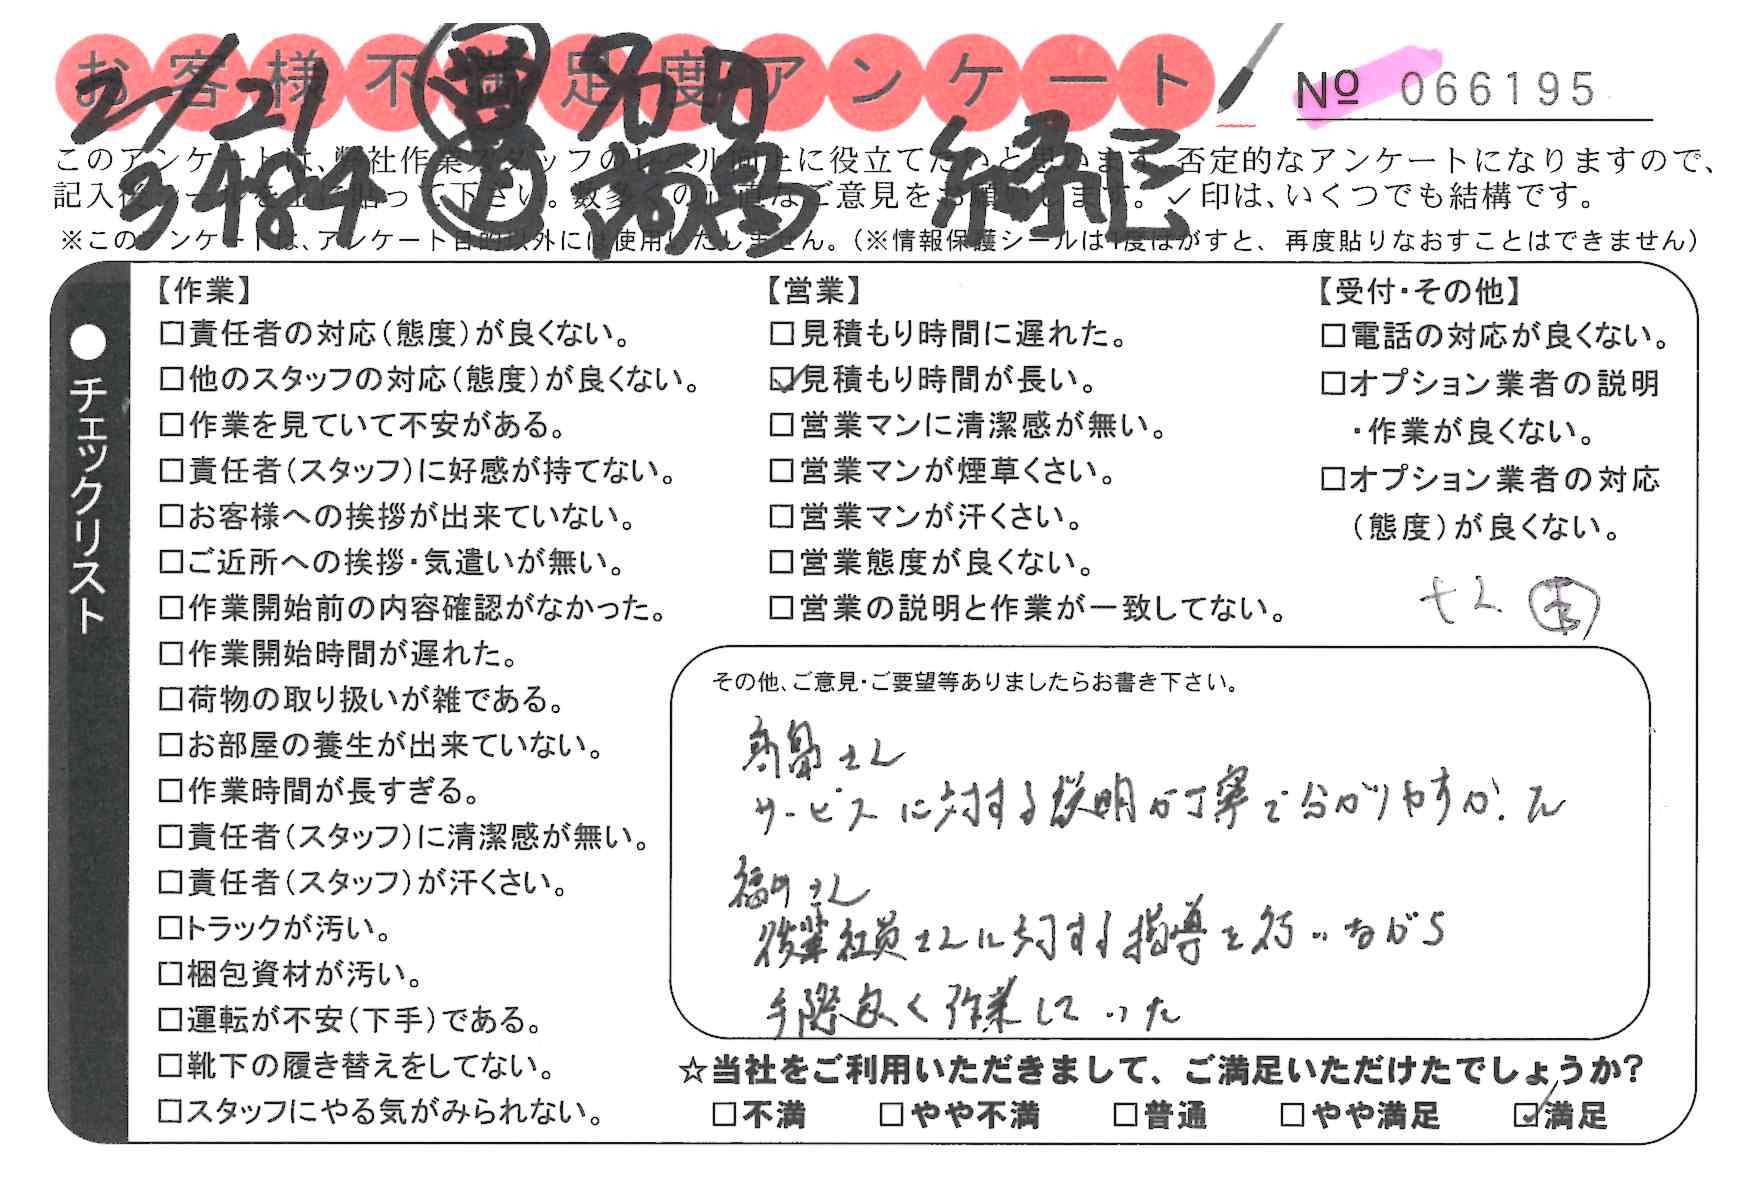 お客様不満足度アンケート
№ 066195
2/21
3484
このアンケートは、弊社作業スタッフのレベル向上に役立てたいと思います。否定的なアンケートになりますので、
記入後シールを上に貼って下さい。数多くの正直なご意見をお願いします。✓印は、いくつでも結構です。
※このアンケートは、アンケート目的以外には使用いたしません。（※情報保護シールは1度はがすと、再度貼りなおすことはできません）
●チェックリスト
【作業】
□責任者の対応（態度）が良くない。
□他のスタッフの対応（態度）が良くない。
□作業を見ていて不安がある。
□責任者（スタッフ）に好感が持てない。
□お客様への挨拶が出来ていない。
□ご近所への挨拶・気遣いが無い。
□作業開始前の内容確認がなかった。
□作業開始時間が遅れた。
□荷物の取り扱いが雑である。
□お部屋の養生が出来ていない。
□作業時間が長すぎる。
□責任者（スタッフ）に清潔感が無い。
□責任者（スタッフ）が汗くさい。
□トラックが汚い。
□梱包資材が汚い。
□運転が不安（下手）である。
□靴下の履き替えをしてない。
□スタッフにやる気がみられない。
【営業】
□見積もり時間に遅れた。
☑見積もり時間が長い。
□営業マンに清潔感が無い。
□営業マンが煙草くさい。
□営業マンが汗くさい。
□営業態度が良くない。
□営業の説明と作業が一致してない。
【受付・その他】
□電話の対応が良くない。
□オプション業者の説明
・作業が良くない。
□オプション業者の対応
（態度）が良くない。
その他、ご意見・ご要望等ありましたらお書き下さい。
さん
サービスに対する説明が丁寧で分かりやすかった
福田さん
後輩社員さんに対する指導を行いながら
手際良く作業していた
☆当社をご利用いただきまして、ご満足いただけたでしょうか?
□不満 □やや不満 □普通 □やや満足 ☑満足